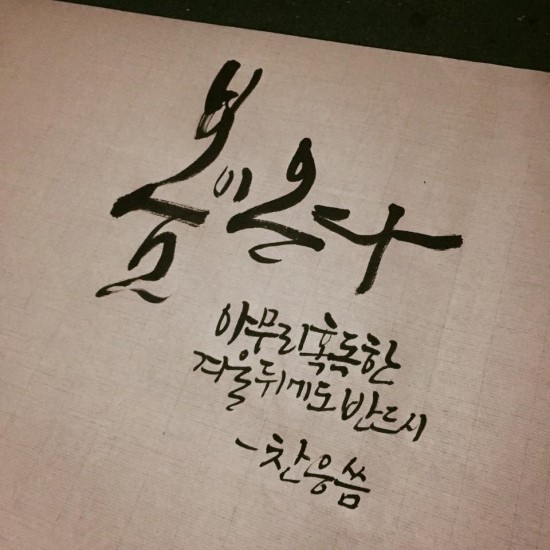 봄이온다
아무리혹독한
겨울뒤에도반드시
-찬웅씀